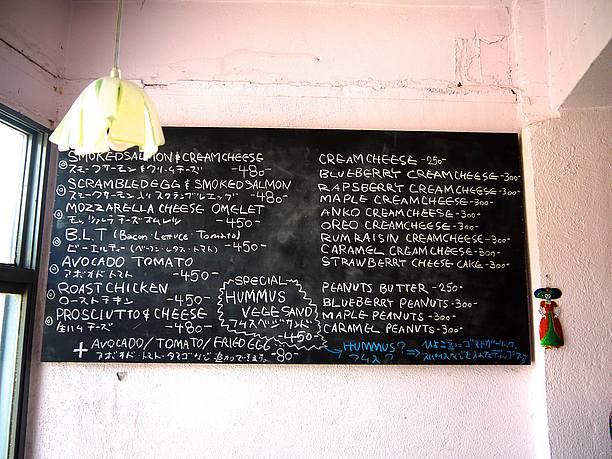 SMOKEDSALMON & CREAMCHEESE
スモークサーモン & クリームチーズ -480-
SCRAMBLEDEGG & SMOKEDSALMON
スモークサーモン入り スクランブルエッグ -480-
MOZZARELLA CHEESE OMELET
モッツァレラ チーズ オムレツ -450-
B.L.T (Bacon・Lettuce・Tomato)
ビーエルティー (ベーコン・レタス・トマト) -450-
AVOCADO TOMATO
アボカド トマト -450-
ROAST CHICKEN
ローストチキン -450-
PROSCIUTTO & CHEESE
生ハム チーズ -480-
+ AVOCADO/TOMATO/FRIED EGG
アボカド・トマト・タマゴなど 追加できます。 -80-
SPECIAL
HUMMUS
VEGE SAND
フムスベジサンド
-450-
CREAM CHEESE -250-
BLUEBERRY CREAMCHEESE -300-
RAPSBERRY CREAMCHEESE -300-
MAPLE CREAMCHEESE -300-
ANKO CREAMCHEESE -300-
OREO CREAMCHEESE -300-
RUM RAISIN CREAMCHEESE -300-
CARAMEL CREAMCHEESE -300-
STRAWBERRY CHEESE CAKE -300-
PEANUTS BUTTER -250-
BLUEBERRY PEANUTS -300-
MAPLE PEANUTS -300-
CARAMEL PEANUTS -300-
HUMMUS? ⇒ ひよこ豆に
フムス?